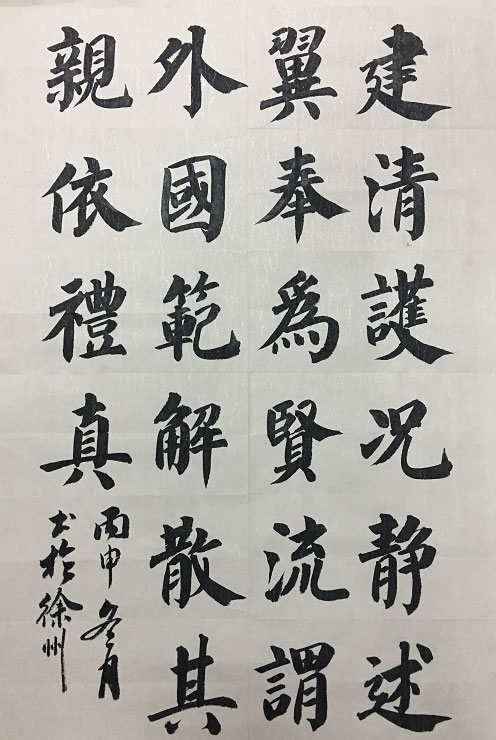 建清護况静述
翼奉爲賢流謂
外國範解散其
親依禮真
丙申冬月
书於徐州